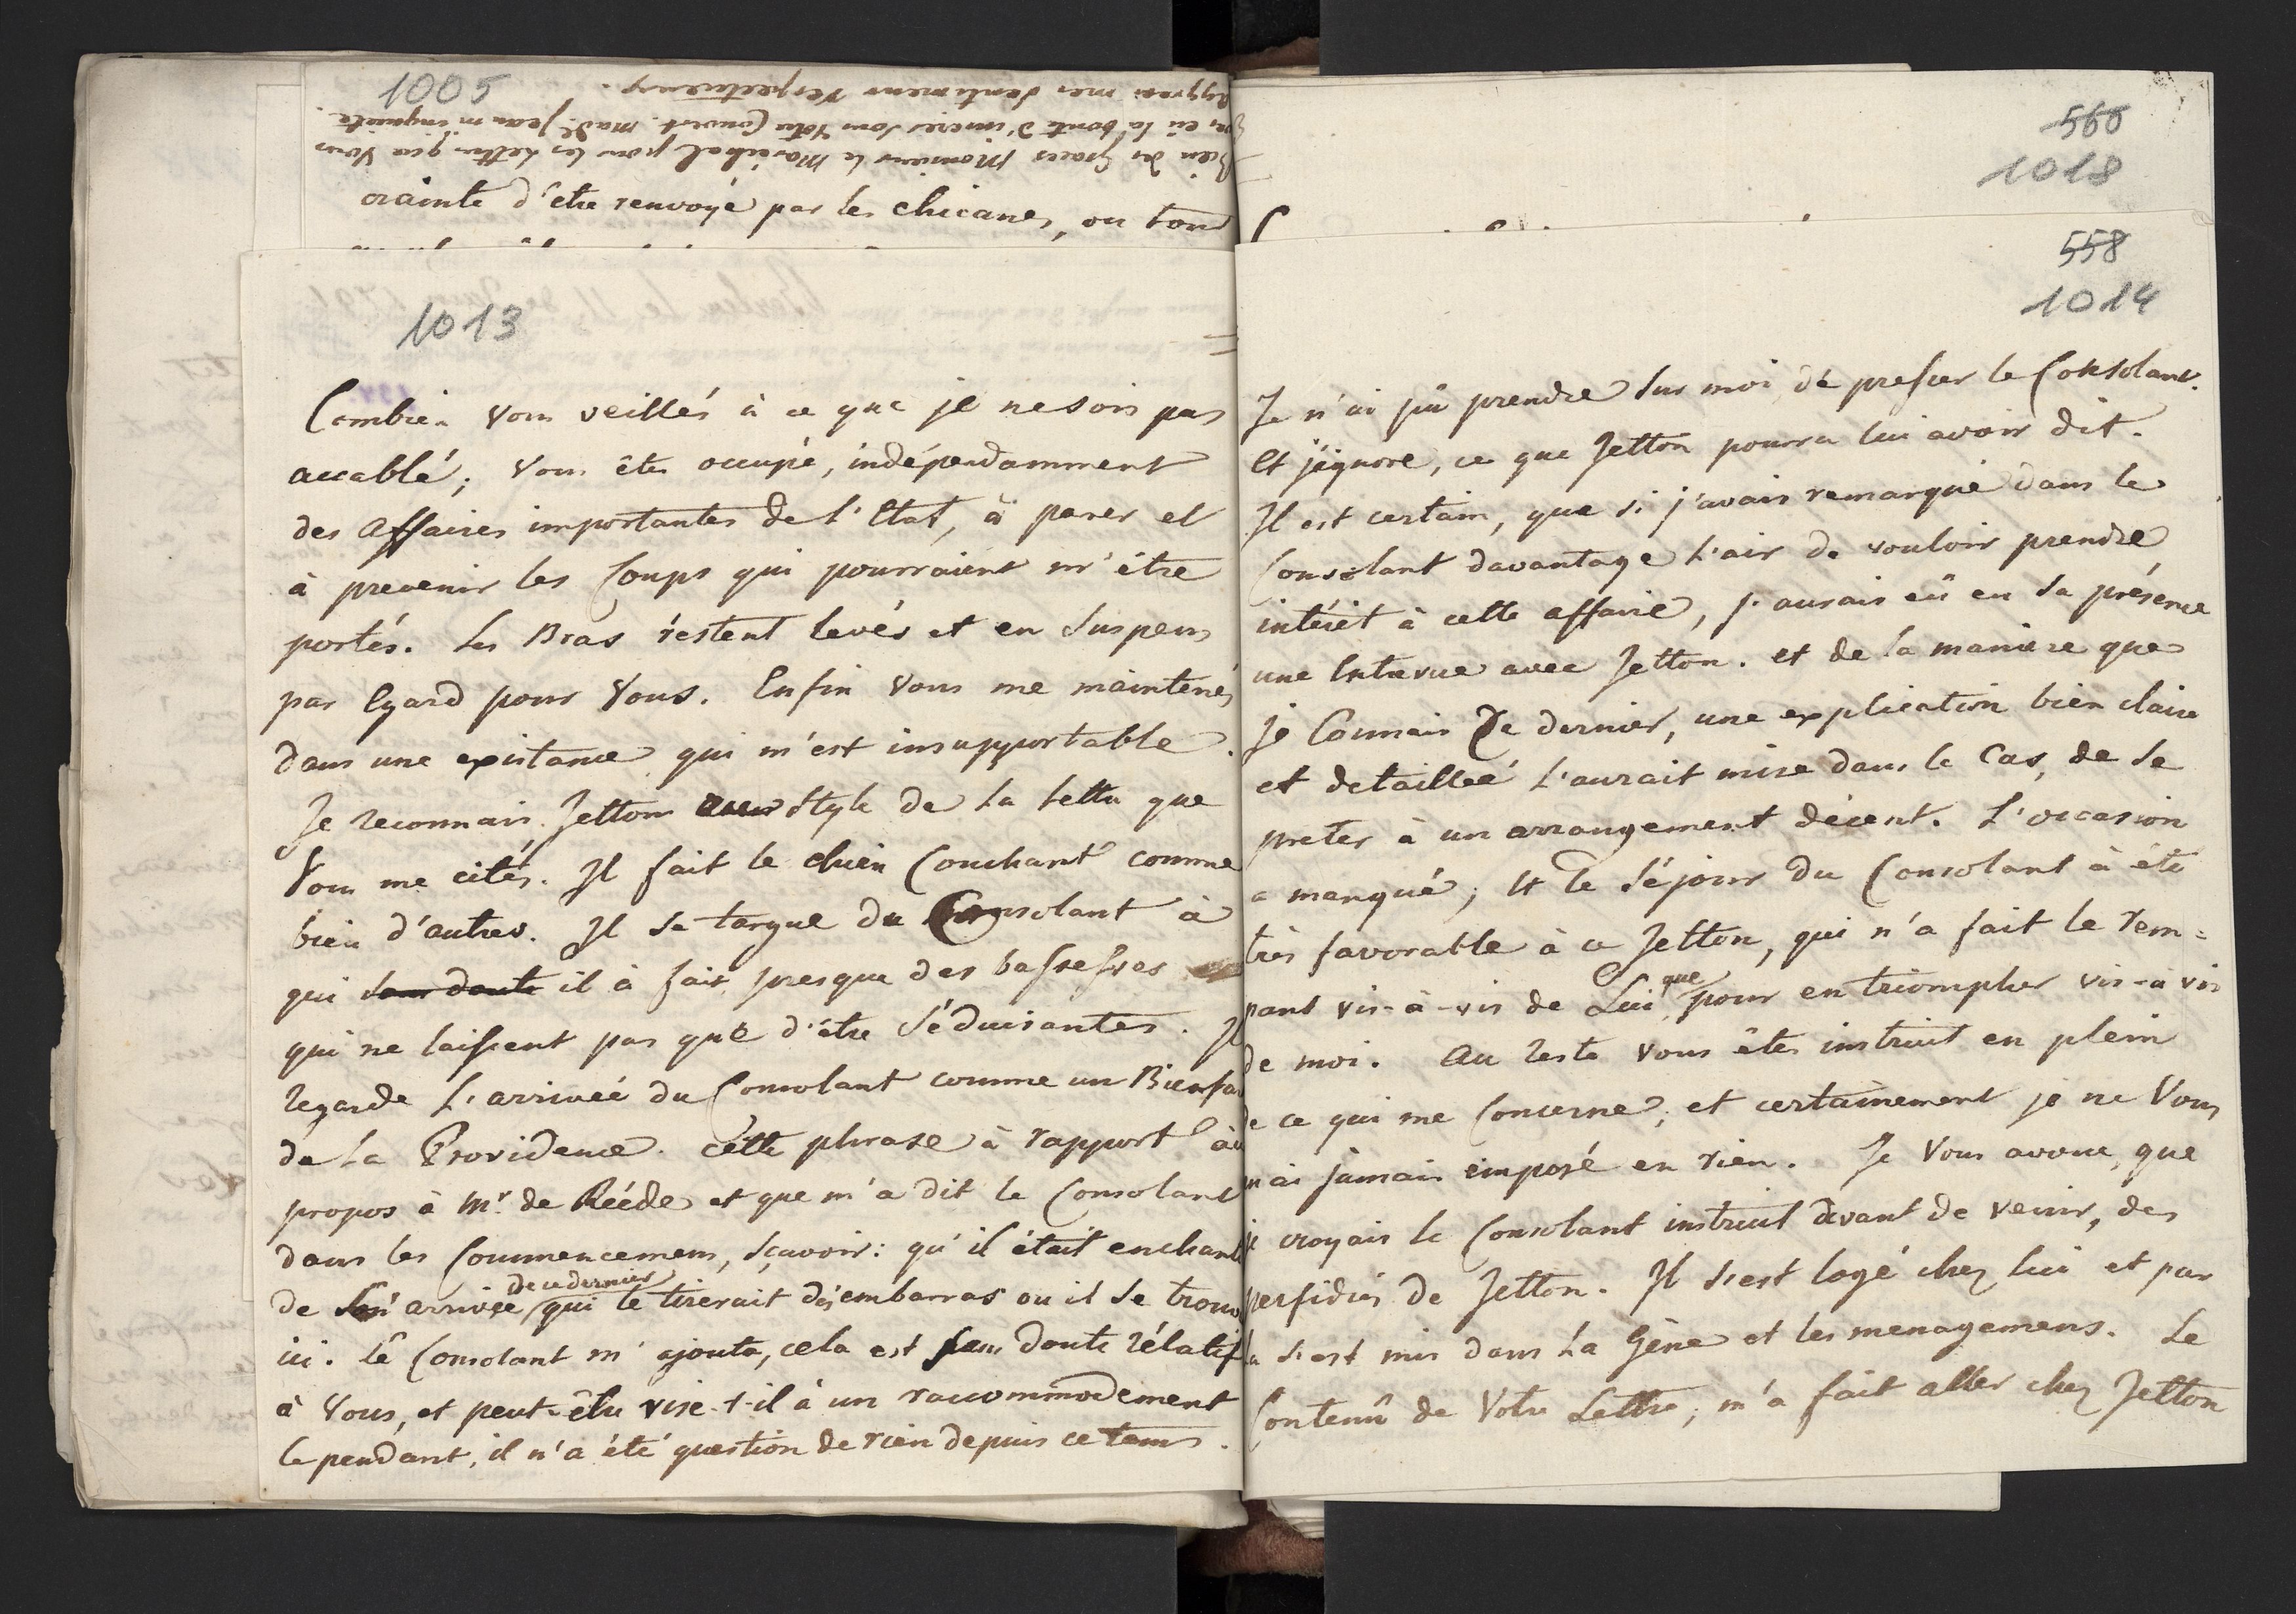 1005
Bien des Graces Monsieur le Maréchal pour les Lettres que Vous
avés eû la bonté d'inserer sous votre Couvert. Made. Jean m'inquiete.
Aggreés mes sentimens respectueux.
crainte d'être renvoyé par les chicanes, ou tous
1013
Combien Vous veillés à ce que je ne sois pas
accablé; Vous êtes occupé, indépendamment
des Affaires importantes de l'Etat, à parer et
à prevenir les Coups qui pourroient m'être
portés. Les Bras restent levés et en suspens
par Egard pour Vous. Enfin Vous me maintenés
dans une existance qui m'est insupportable.
Je reconnais Jetton au Style de la Lettre que
Vous me cités. Il fait le chien Couchant comme
bien d'autres. Il se targue du Consolant à
qui sans doute il à fait presque des bassesses
qui ne laissent pas que d'être séduisantes. Il
regarde l'arrivée du Consolant comme un Bienfai
de la Providence. cette phrase à rapport au
propos à Mr. de Reéde et que m'a dit le Consolant
dans les Commencemens, sçavoir: qu'il était enchanté
de son arrivée de ce dernier qui le tirerait d'embarras ou il se trouve
ici. Le Consolant m'ajouta, cela est sans doute rélatif
à Vous, et peut-être vise-t-il à un raccommodement
Cependant, il n'a été question de rien depuis ce tems.
560
1018
558
1014
Je n'ai pû prendre sur moi de presser le Consolant.
Et j'ignore, ce que Jetton pourra lui avoir dit.
Il est certain, que si j'avais remarqué dans le
Consolant davantage l'air de vouloir prendre
intérêt à cette affaire, j'aurais eû en sa présence
une Entrevue avec Jetton. et de la maniere que
je Connais Ce dernier, une explication bien claire
et detailleé l'aurait mise dans le Cas, de se
preter à un arrangement décent. L'occasion
a manqué; Et le séjour du Consolant à été
très favorable à ce Jetton, qui n'a fait le ram=
pant vis-à-vis de Lui que pour en triompher vis-à-vis
de moi. Au reste vous êtes instruit en plein
de ce qui me Concerne; et certainement je ne Vous
n'ai jamais imposé en rien. Je Vous avoue, que
je croyais le Consolant instruit avant de venir, des
perfidies de Jetton. Il s'est logé chez lui et par
la s'est mis dans la Gène et les menagemens. Le
Contenû de Votre Lettre, m'a fait aller chez Jetton